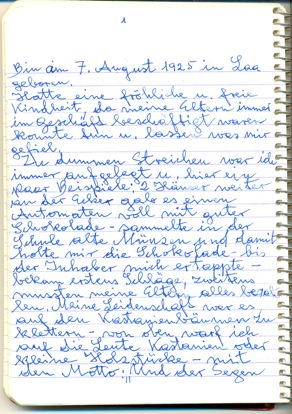 1
Bin am 7. August 1925 in Laa
geboren.
Hatte eine fröhliche u. freie
Kindheit, da meine Eltern immer
im Geschäft beschäftigt waren
konnte tun u. lassen was mir
gefiel.
Zu dummen Streichen war ich
immer aufgelegt u. hier ein
paar Beispiele: 2 Häuser weiter
an der Ecke gab es einen
Automaten voll mit guter
Schokolade - sammelte in der
Schule alte Münzen und damit
holte mir die Schokolade - bis
der Inhaber mich ertappte -
bekam erstens Schläge, zweitens
mussten meine Eltern alles bezah-
len. Meine Leidenschaft war es
auf den Kastanienbäumen zu
klettern - von oben warf ich
auf die Leute Kastanien oder
kleine Holzstücke - mit
den Motto: "Und der Segen